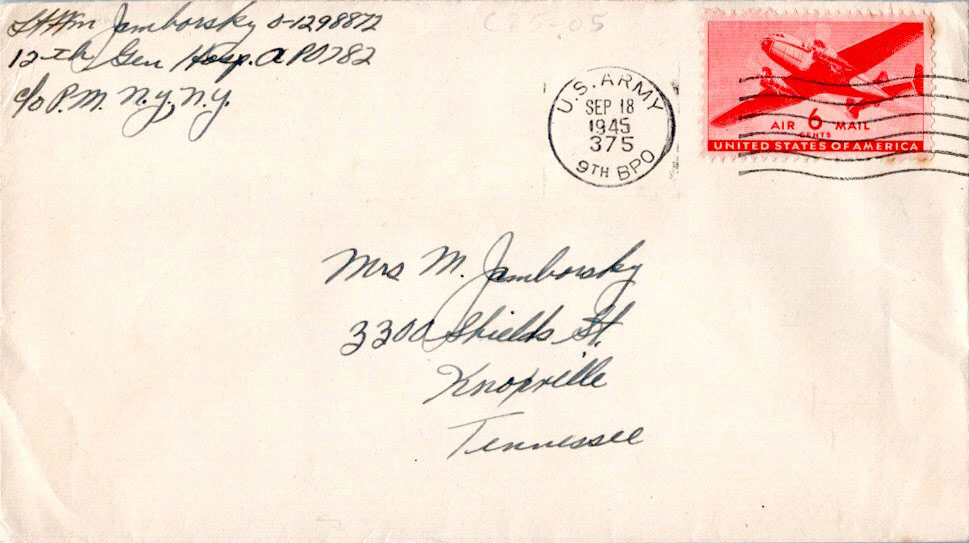 Lt Wm Jamborsky O-1298872
12th Gen Hosp. APO 782
c/o P.M. N.Y., N.Y.
U.S. ARMY
SEP 18
1945
375
9TH BPO
AIR 6 MAIL
CENTS
UNITED STATES OF AMERICA
Mrs M. Jamborsky
3300 Shields St.
Knoxville
Tennessee